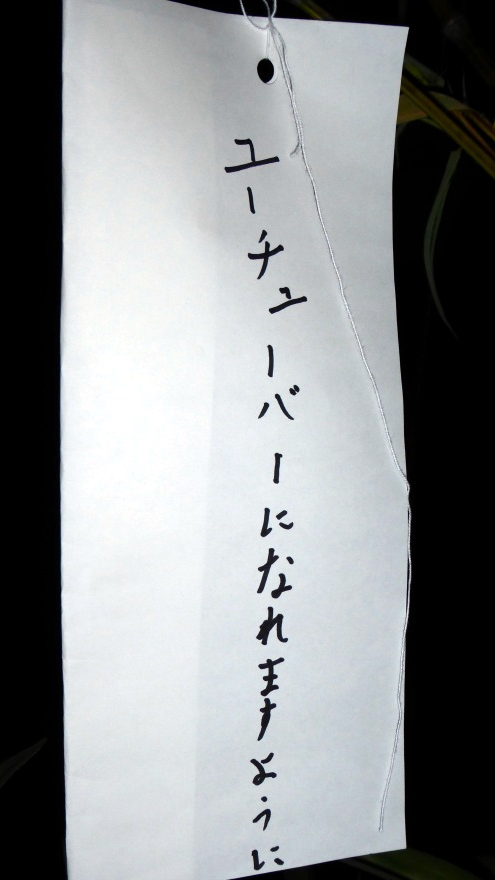 ユーチューバーになれますように